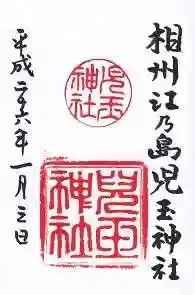 相州江乃島児玉神社
児玉神社
兒玉神社
平成二十六年一月三日